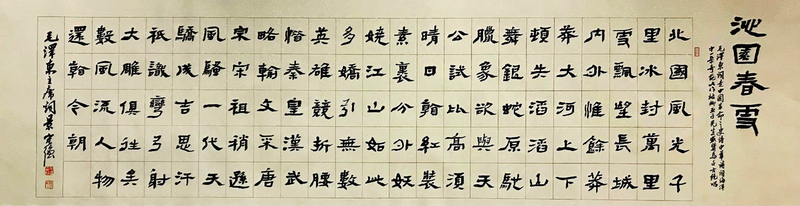 沁園春雪
北國風光千
里冰封萬里
雪飄望長城
内外惟餘莽
莽大河上下
頓失滔滔山
舞銀蛇原馳
臘象欲與天
公試比高須
晴日看紅裝
素裹分外妖
嬈江山如此
多嬌引無數
英雄競折腰
惜秦皇漢武
略輸文采唐
宗宋祖稍遜
風騷一代天
驕成吉思汗
祇識彎弓射
大雕俱往矣
數風流人物
還看今朝
毛澤東主席詞景